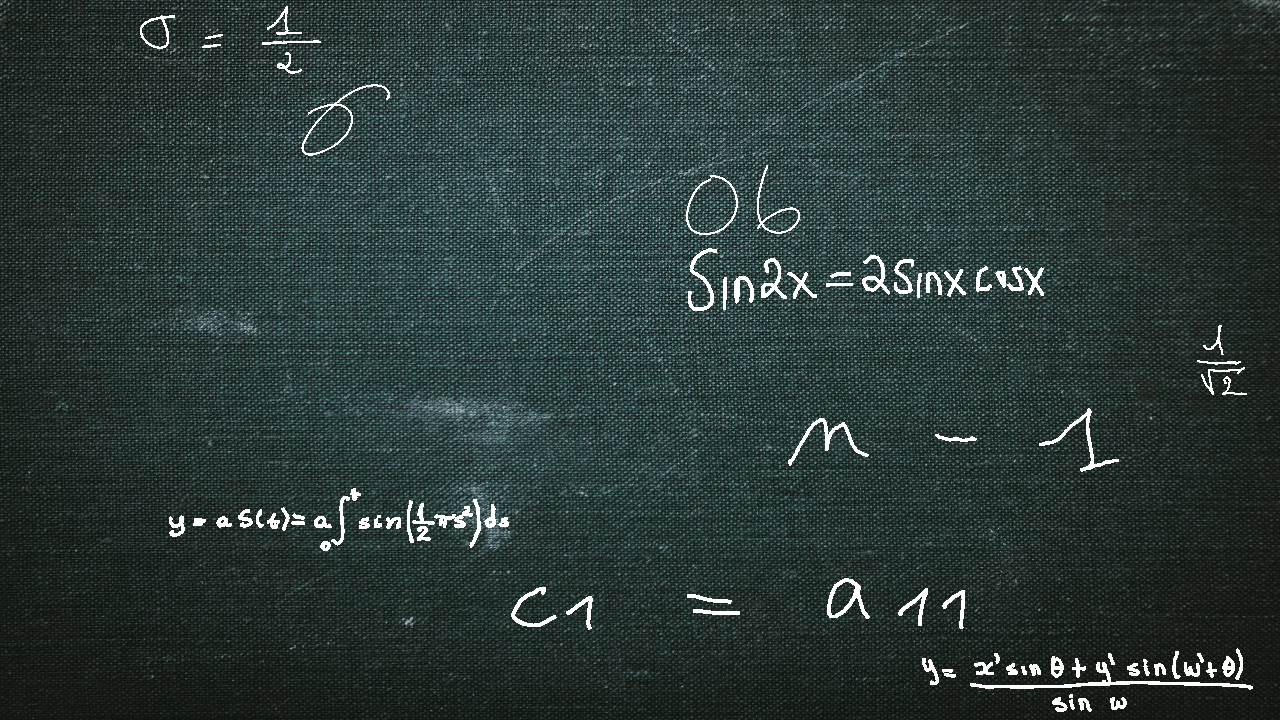 σ = 1/2
σ
06
Sin2x = 2Sinx cosx
1/√2
n - 1
y = a S(t) = a ∫₀ᵗ sin(1/2 πs²) ds
c1 = a 11
y = (x' sin θ + y' sin(w' + θ)) / sin w